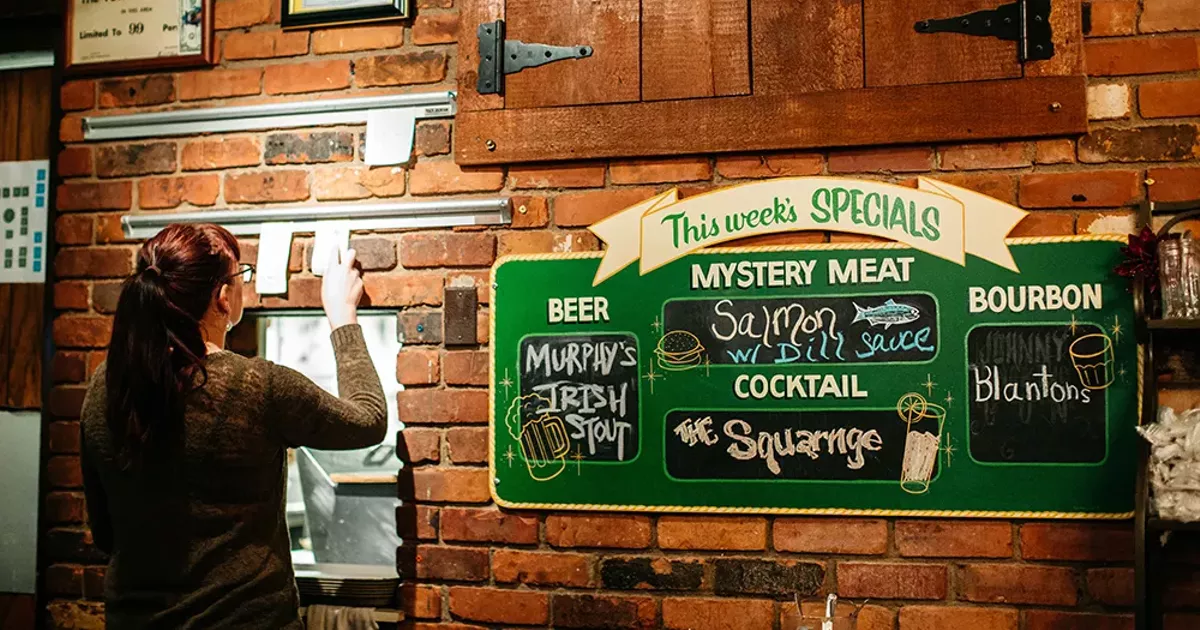 IN THIS AREA
Limited To 99 Per
This week's SPECIALS
MYSTERY MEAT
Salmon
w/ Dill Sauce
BEER
MURPHY'S
IRISH
STOUT
COCKTAIL
THE Squarnge
BOURBON
JOHNNY
Blantons